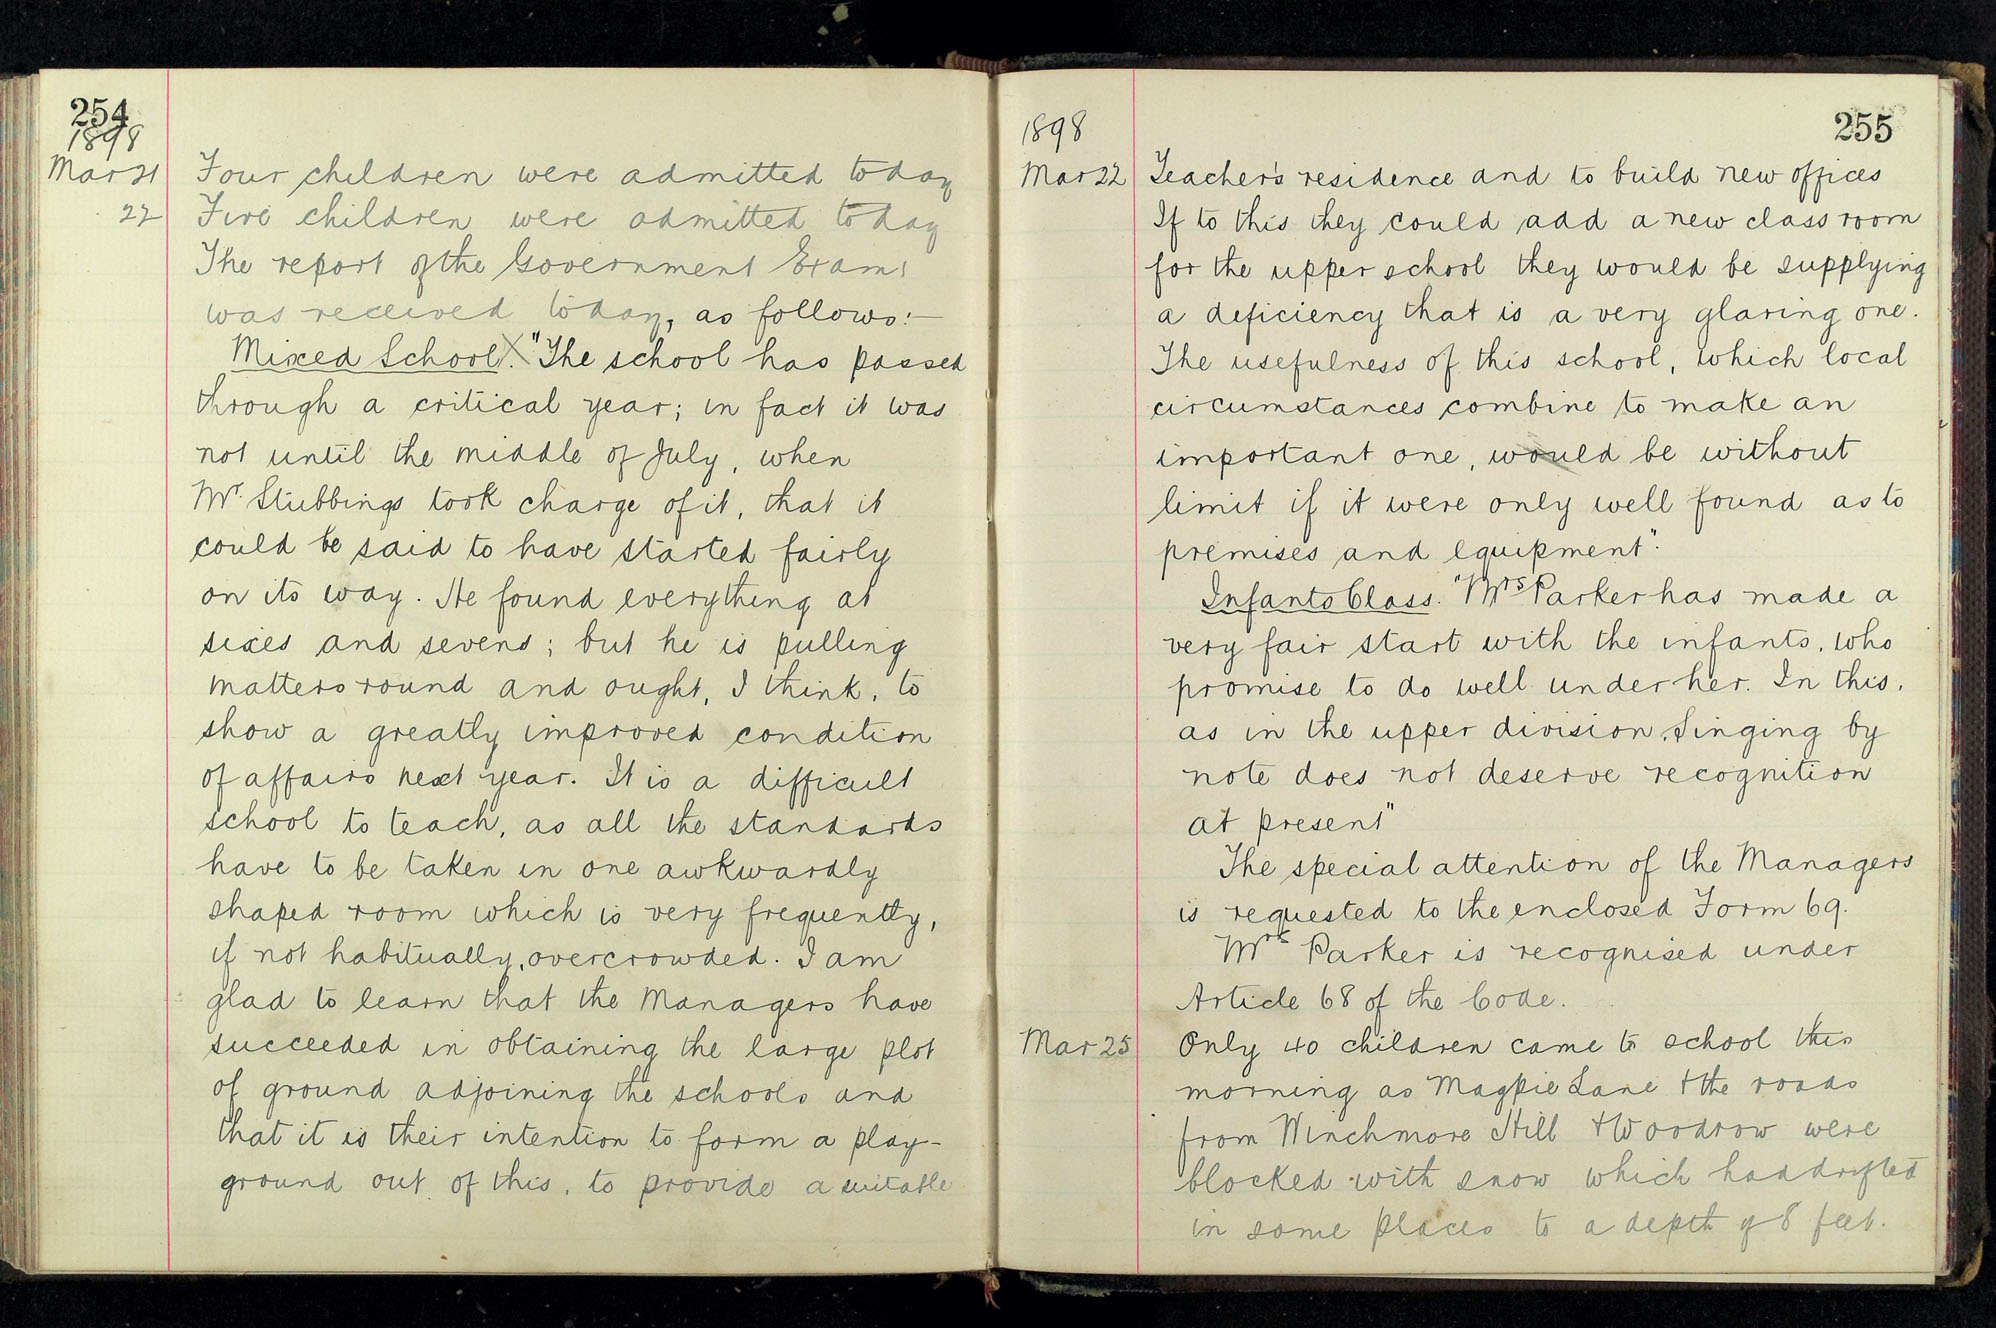 254
1898
Mar 21 Four children were admitted today
22 Five children were admitted today
The report of the Government Exam:
was received today, as follows:—
Mixed School. "The school has passed
through a critical year; in fact it was
not until the middle of July, when
Mr. Stubbings took charge of it, that it
could be said to have started fairly
on its way. He found everything at
sixes and sevens; but he is pulling
matters round and ought, I think, to
show a greatly improved condition
of affairs next year. It is a difficult
school to teach, as all the standards
have to be taken in one awkwardly
shaped room which is very frequently,
if not habitually, overcrowded. I am
glad to learn that the Managers have
succeeded in obtaining the large plot
of ground adjoining the schools and
that it is their intention to form a play-
ground out of this, to provide a suitable
255
1898
Mar 22 Teacher's residence and to build new offices
If to this they could add a new class room
for the upper school they would be supplying
a deficiency that is a very glaring one.
The usefulness of this school, which local
circumstances combine to make an
important one, would be without
limit if it were only well found as to
premises and equipment".
Infants Class. "Mrs Parker has made a
very fair start with the infants, who
promise to do well under her. In this,
as in the upper division, Singing by
note does not deserve recognition
at present"
The special attention of the Managers
is requested to the enclosed Form 69.
Mrs Parker is recognised under
Article 68 of the Code.
Mar 25 Only 40 children came to school this
morning as Magpie Lane & the roads
from Winchmore Hill & Woodrow were
blocked with snow which had drifted
in some places to a depth of 8 feet.